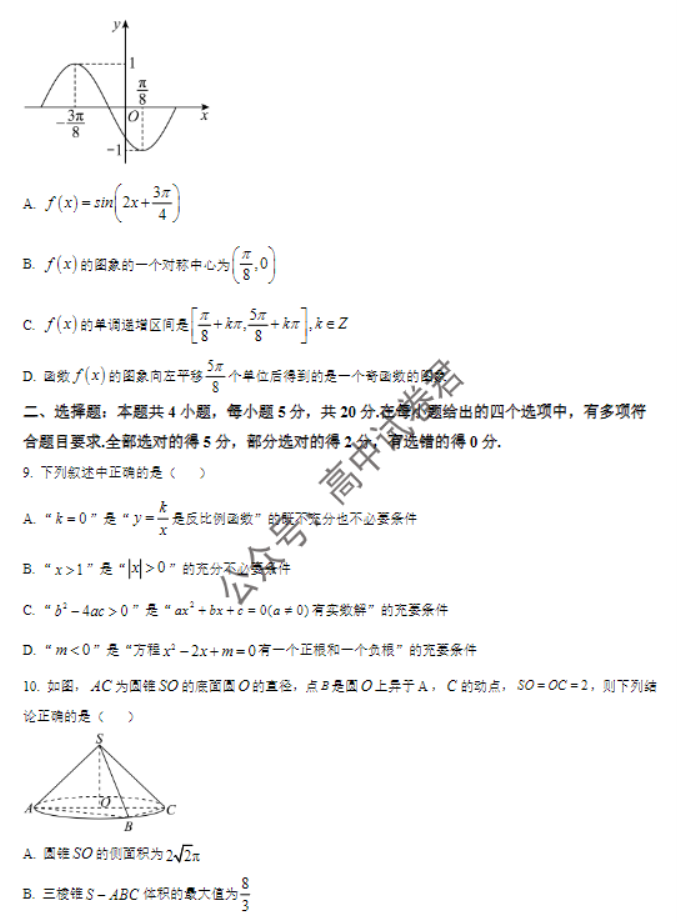 y
1
π/8
-3π/8
O
x
-1
A. f(x)=sin(2x+3π/4)
B. f(x)的图象的一个对称中心为(π/8,0)
C. f(x)的单调递增区间是[π/8+kπ,5π/8+kπ],k∈Z
D. 函数f(x)的图象向左平移5π/8个单位后得到的是一个奇函数的图象
二、选择题：本题共4小题，每小题5分，共20分.在每小题给出的四个选项中，有多项符
合题目要求.全部选对的得5分，部分选对的得2分，有选错的得0分.
9. 下列叙述中正确的是（ ）
A. “k=0”是“y=k/x是反比例函数”的既不充分也不必要条件
B. “x>1”是“|x|>0”的充分不必要条件
C. “b²-4ac>0”是“ax²+bx+c=0(a≠0)有实数解”的充要条件
D. “m<0”是“方程x²-2x+m=0有一个正根和一个负根”的充要条件
10. 如图，AC为圆锥SO的底面圆O的直径，点B是圆O上异于A，C的动点，SO=OC=2，则下列结
论正确的是（ ）
S
A
O
C
B
A. 圆锥SO的侧面积为2√2π
B. 三棱锥S-ABC体积的最大值为8/3
公众号：高中试卷君